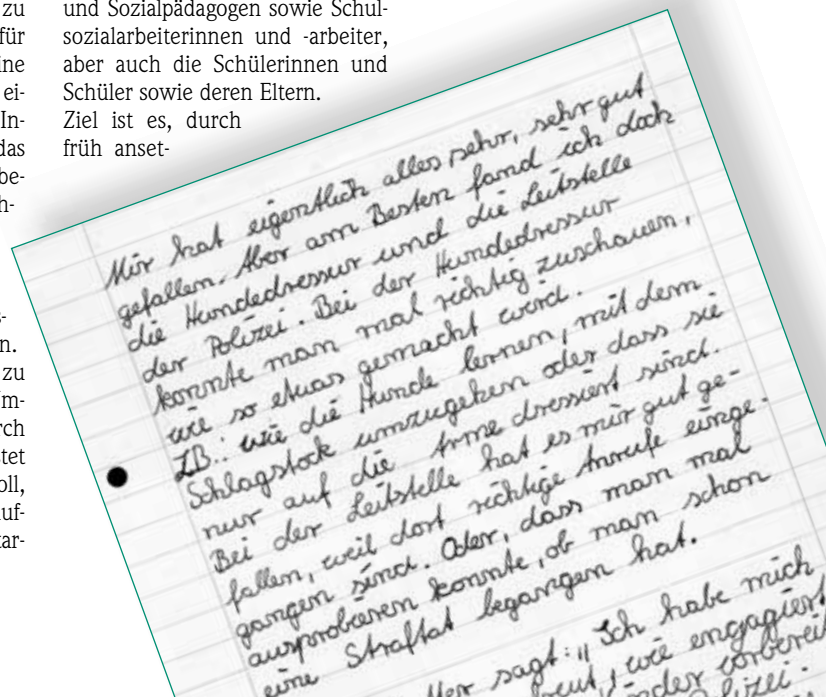 zu
für
ine
ei-
In-
das
be-
h-
s-
n.
zu
m-
rch
tet
oll,
uf-
tar-
und Sozialpädagogen sowie Schul-
sozialarbeiterinnen und -arbeiter,
aber auch die Schülerinnen und
Schüler sowie deren Eltern.
Ziel ist es, durch
früh anset-
Mir hat eigentlich alles sehr, sehr gut
gefallen. Aber am Besten fand ich doch
die Hundedressur und die Leitstelle
der Polizei. Bei der Hundedressur
konnte man mal richtig zuschauen,
wie so etwas gemacht wird.
ZB.: wie die Hunde lernen, mit dem
Schlagstock umzugehen oder dass sie
nur auf die Arme dressiert sind.
Bei der Leitstelle hat es mir gut ge-
fallen, weil dort richtige Anrufe einge-
gangen sind. Oder, dass man mal
ausprobieren konnte, ob man schon
eine Straftat begangen hat.
sagt: "Ich habe mich
wie engagiert